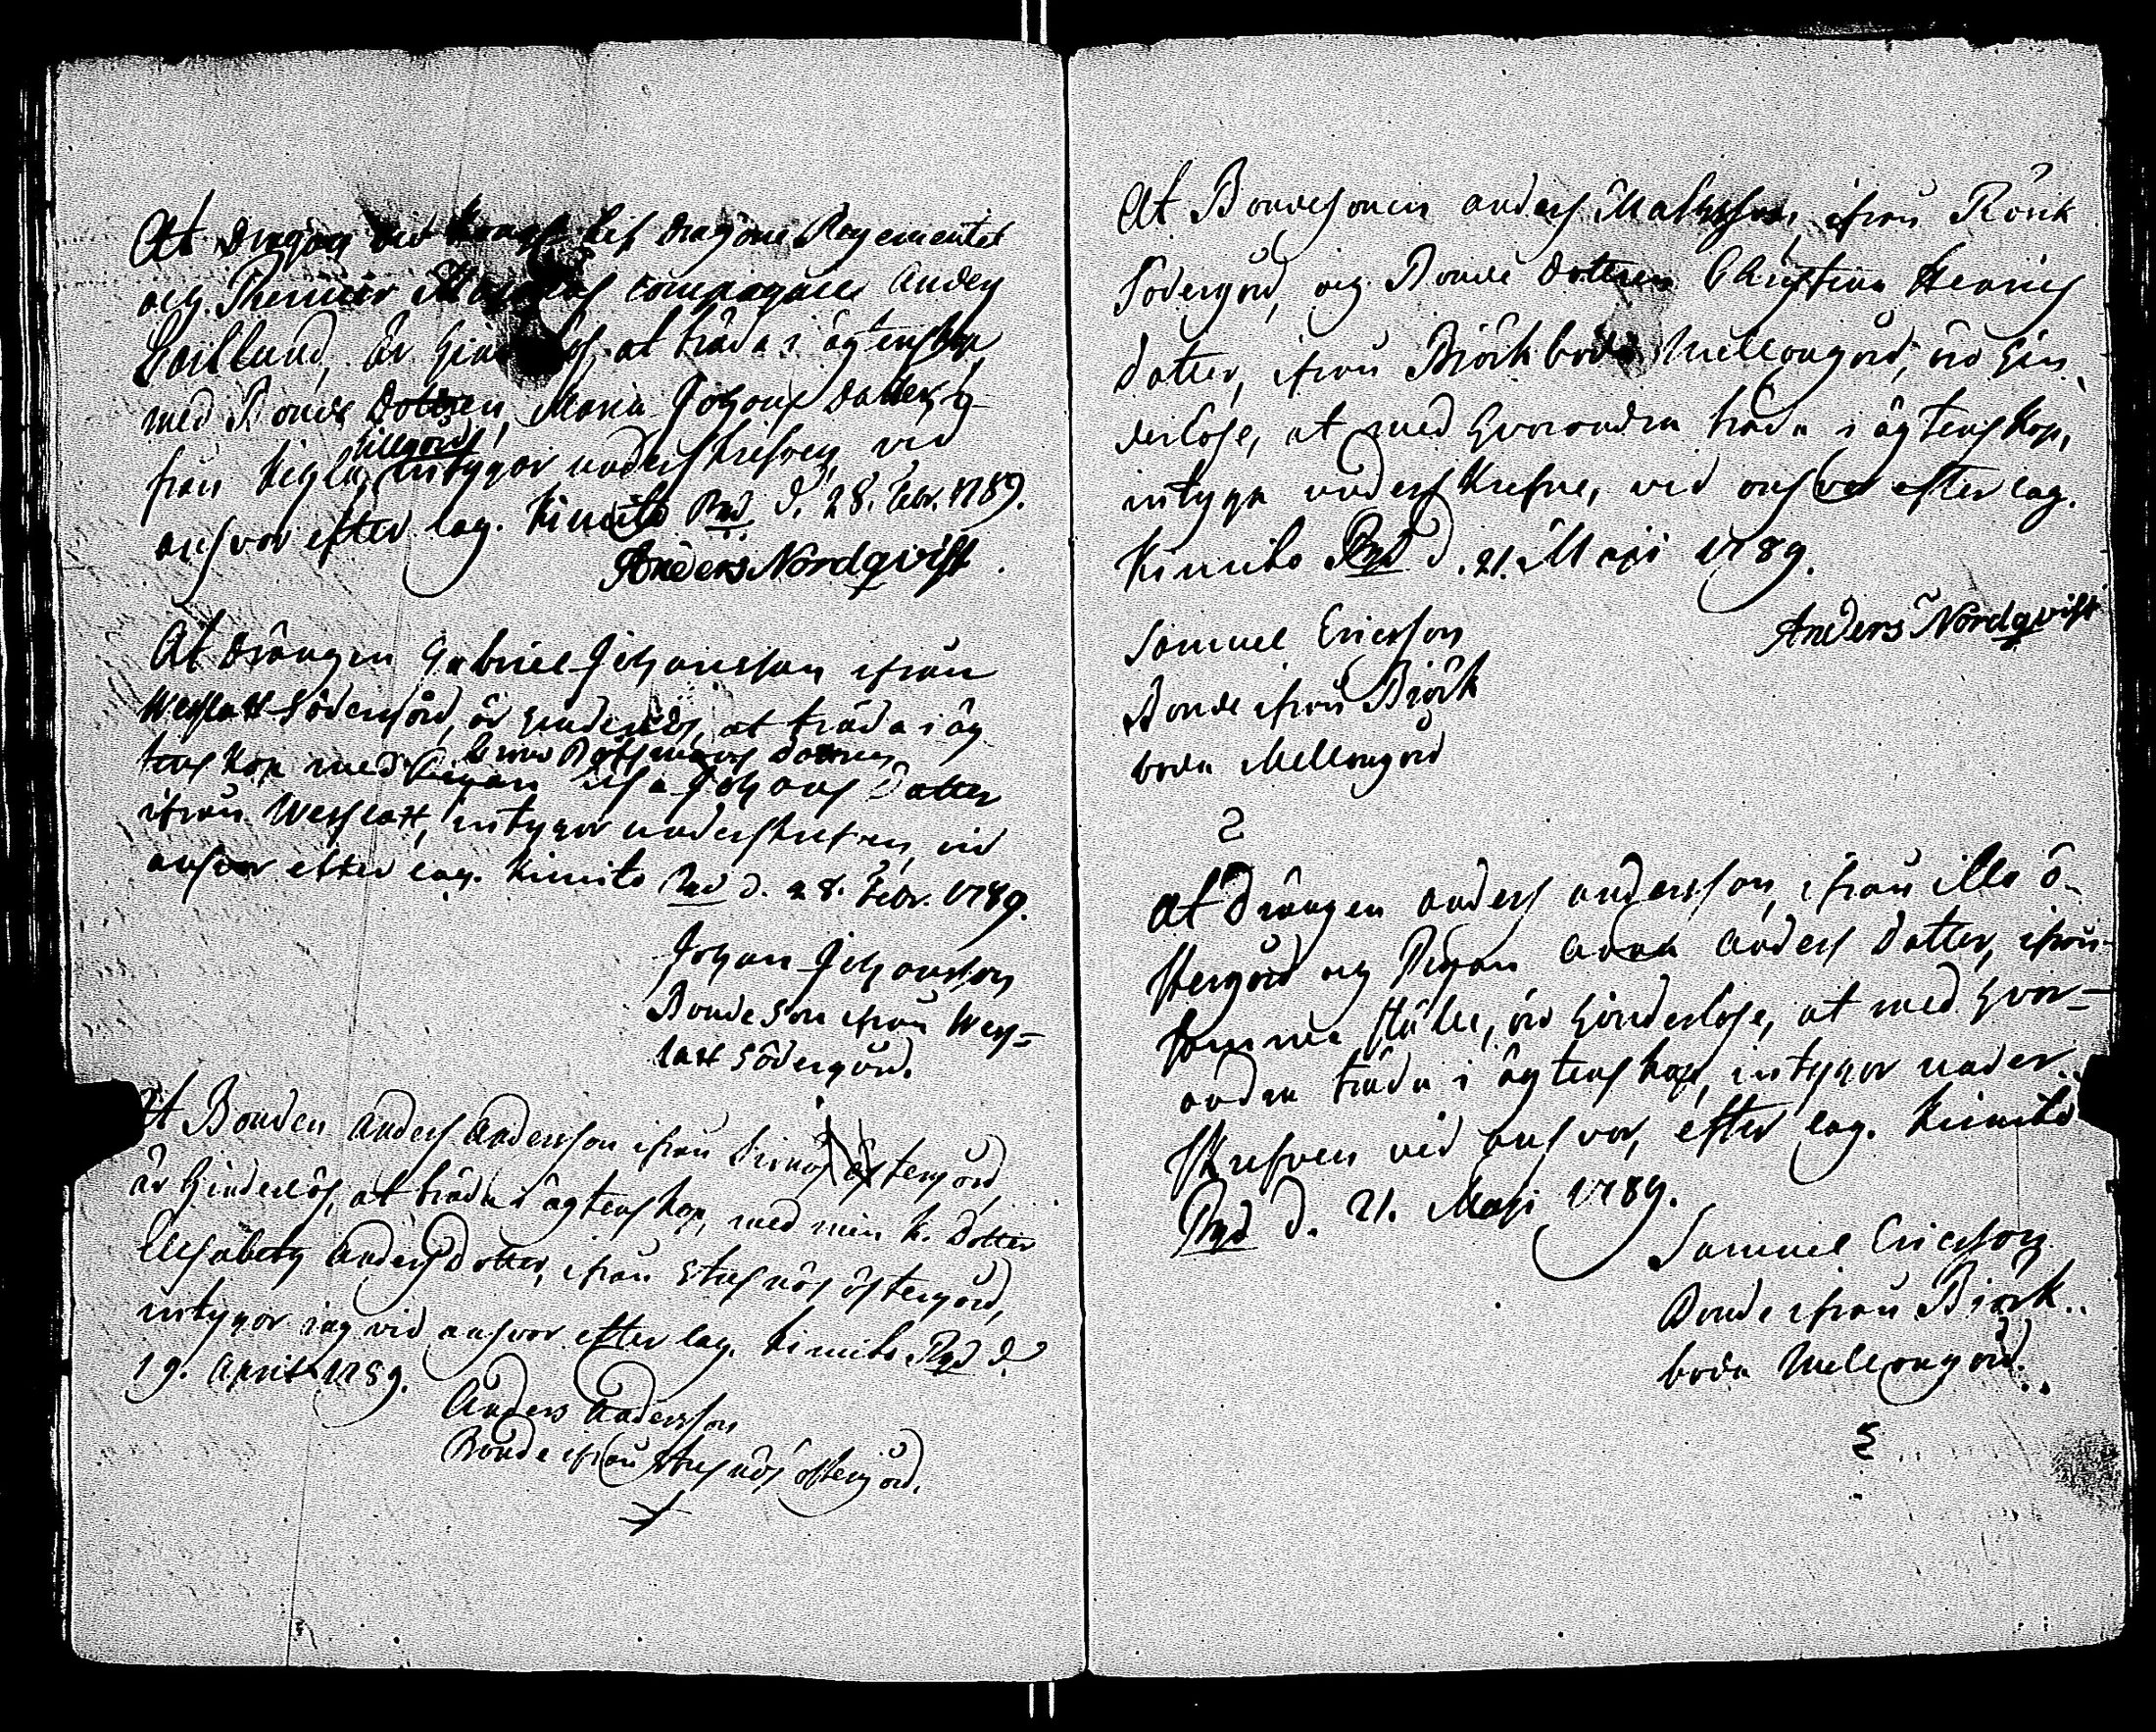 At Dragon vid Kongl. Lif Dragone Regementet
och Premier Majorens Compagnie Anders
Hailund, är hinderlös at träda i ägtenskap
med Bonde Dottren, Maria Johans Datter, i-
från Vigla, lillgård
intygar underskrefven, vid
answar efter lag. Kimito Pgd d. 28. Febr. 1789.
Anders Nordqvist.
At Drängen Gabriel Johansson ifrån
Westlax Södergård, är hinderlös, at träda i äg
tenskap med Pigan
Elsa Johans Datter
ifrån Westlax, intygar underskrefven, vid
answar efter lag. Kimito Pgd d. 28. Febr. 1789.
Johan Johansson
Bonde Son ifrån West=
lax Södergård.
At Bonden Anders Andersson ifrån östergård,
är hinderlös, at träda i ägtenskap, med min k. Dotter
Elisabeth Anders Dotter, ifrån Stusnäs östergård,
intygar jag vid answar efter lag. Kimito Pgd d.
19. April 1789.
Anders Andersson
Bonde ifrån Stusnäs östergård.
At Bondesonen Anders Matsson, ifrån Rövik
Södergård, och Bonde Dottren Christina Henrics
dotter, ifrån Björkboda Mellangård, äro hin-
derlöse, at med hvarandra träda i ägtenskap,
intyga underskrefne, vid answar efter lag.
Kimito Pgd d. 21. Maji 1789.
Anders Nordqvist
Samuel Ericsson
Bonde ifrån Björk
boda Mellangård
At Drängen Anders Andersson, ifrån Illo ö-
stergård och Pigan Anna Anders Datter, ifrån
samme ställe, äro hinderlöse, at med hvar-
andra träda i ägtenskap, intygar under..
skrefven vid answar, efter lag. Kimito
Pgd d. 21. Maji 1789.
Samuel Ericsson
Bonde ifrån Björk..
boda Mellangård...